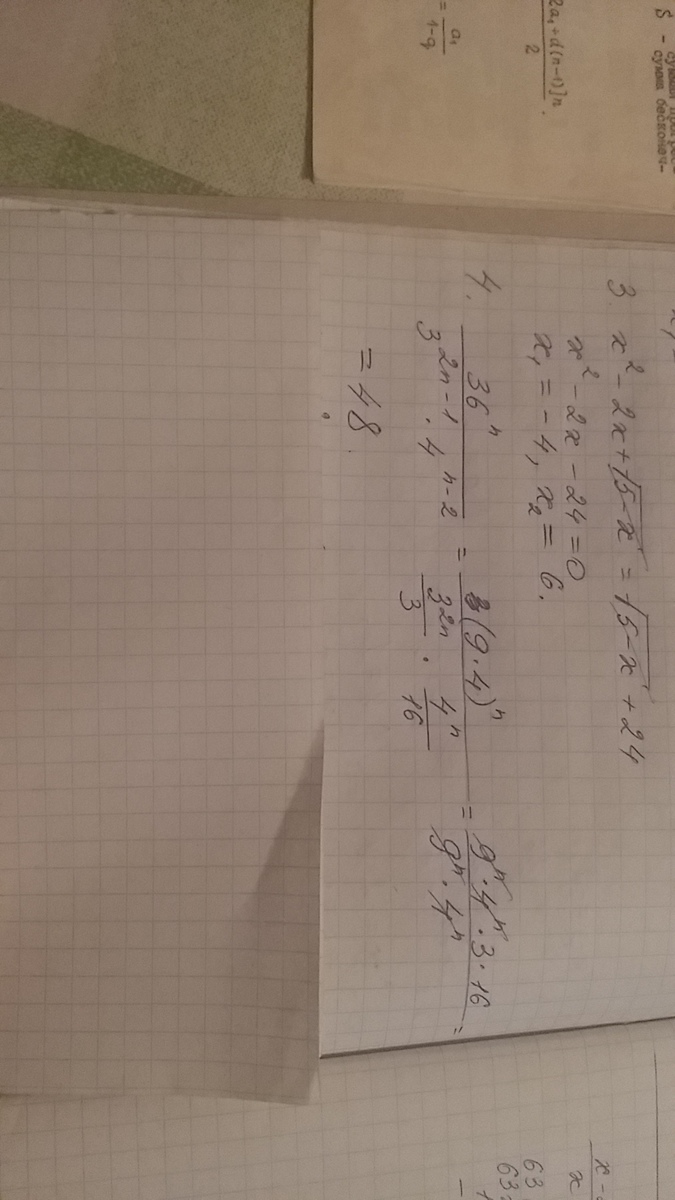 2a₁+d(n-1)]n
2
.
= a₁
1-q
S - сумма бесконеч-
3. x² - 2x + √5-x = √5-x + 24
x² - 2x - 24 = 0
x₁ = -4, x₂ = 6.
4. 36ⁿ / 3²ⁿ⁻¹ · 4ⁿ⁻² = (9·4)ⁿ / 3²ⁿ/3 · 4ⁿ/16 = 9ⁿ · 4ⁿ · 3 · 16 / 9ⁿ · 4ⁿ =
= 48.
x -
x
63
63